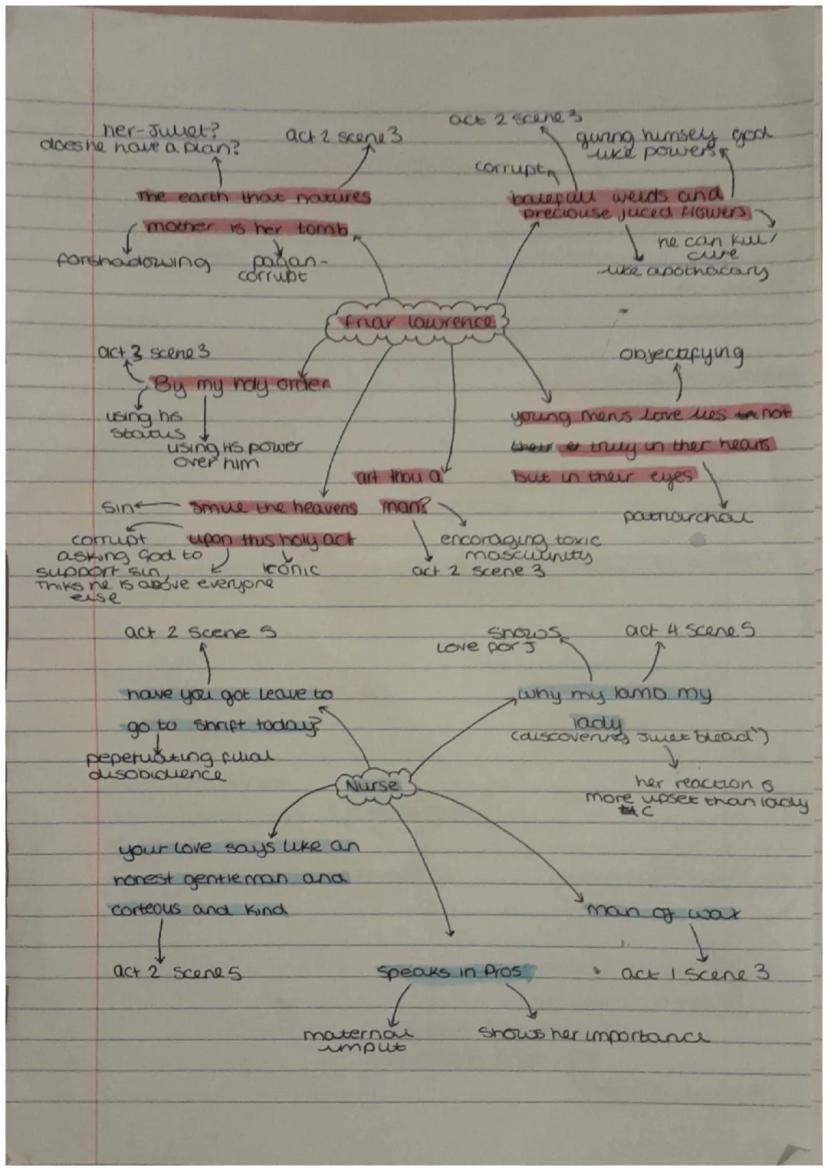 her-Juliet?
does he have a plan?
act 2 scene 3
The earth that natures
mother is her tomb
forshadowing
pagan-
corrupt
act 2 scene 3
giving himself god
like powers
corrupt
balefull weeds and
preciouse juced flowers
he can kill/
cure
like apothacary
friar lawrence
act 3 scene 3
By my holy order
using his
status
using his power
over him
objectifying
young mens love lies not
truly in ther hearts
but in their eyes
patriarchal
art thou a
man?
encoraging toxic
masculinity
act 2 scene 3
sin
Smile the heavens
upon this holy act
corrupt
asking God to
support sin
Thiks he is above everyone
else
iconic
act 2 scene 5
have you got leave to
go to shrift today?
peperuating filial
disobidience
shows
love for J
act 4 scene 5
why my lamb my
lady
(discovering Juliet
her reaction is
more upset than lady
C
Nurse
your love says like an
honest gentleman and
corteous and kind
act 2 scene 5
speaks in Pros
maternal
imput
shows her importance
man of wax
act 1 scene 3